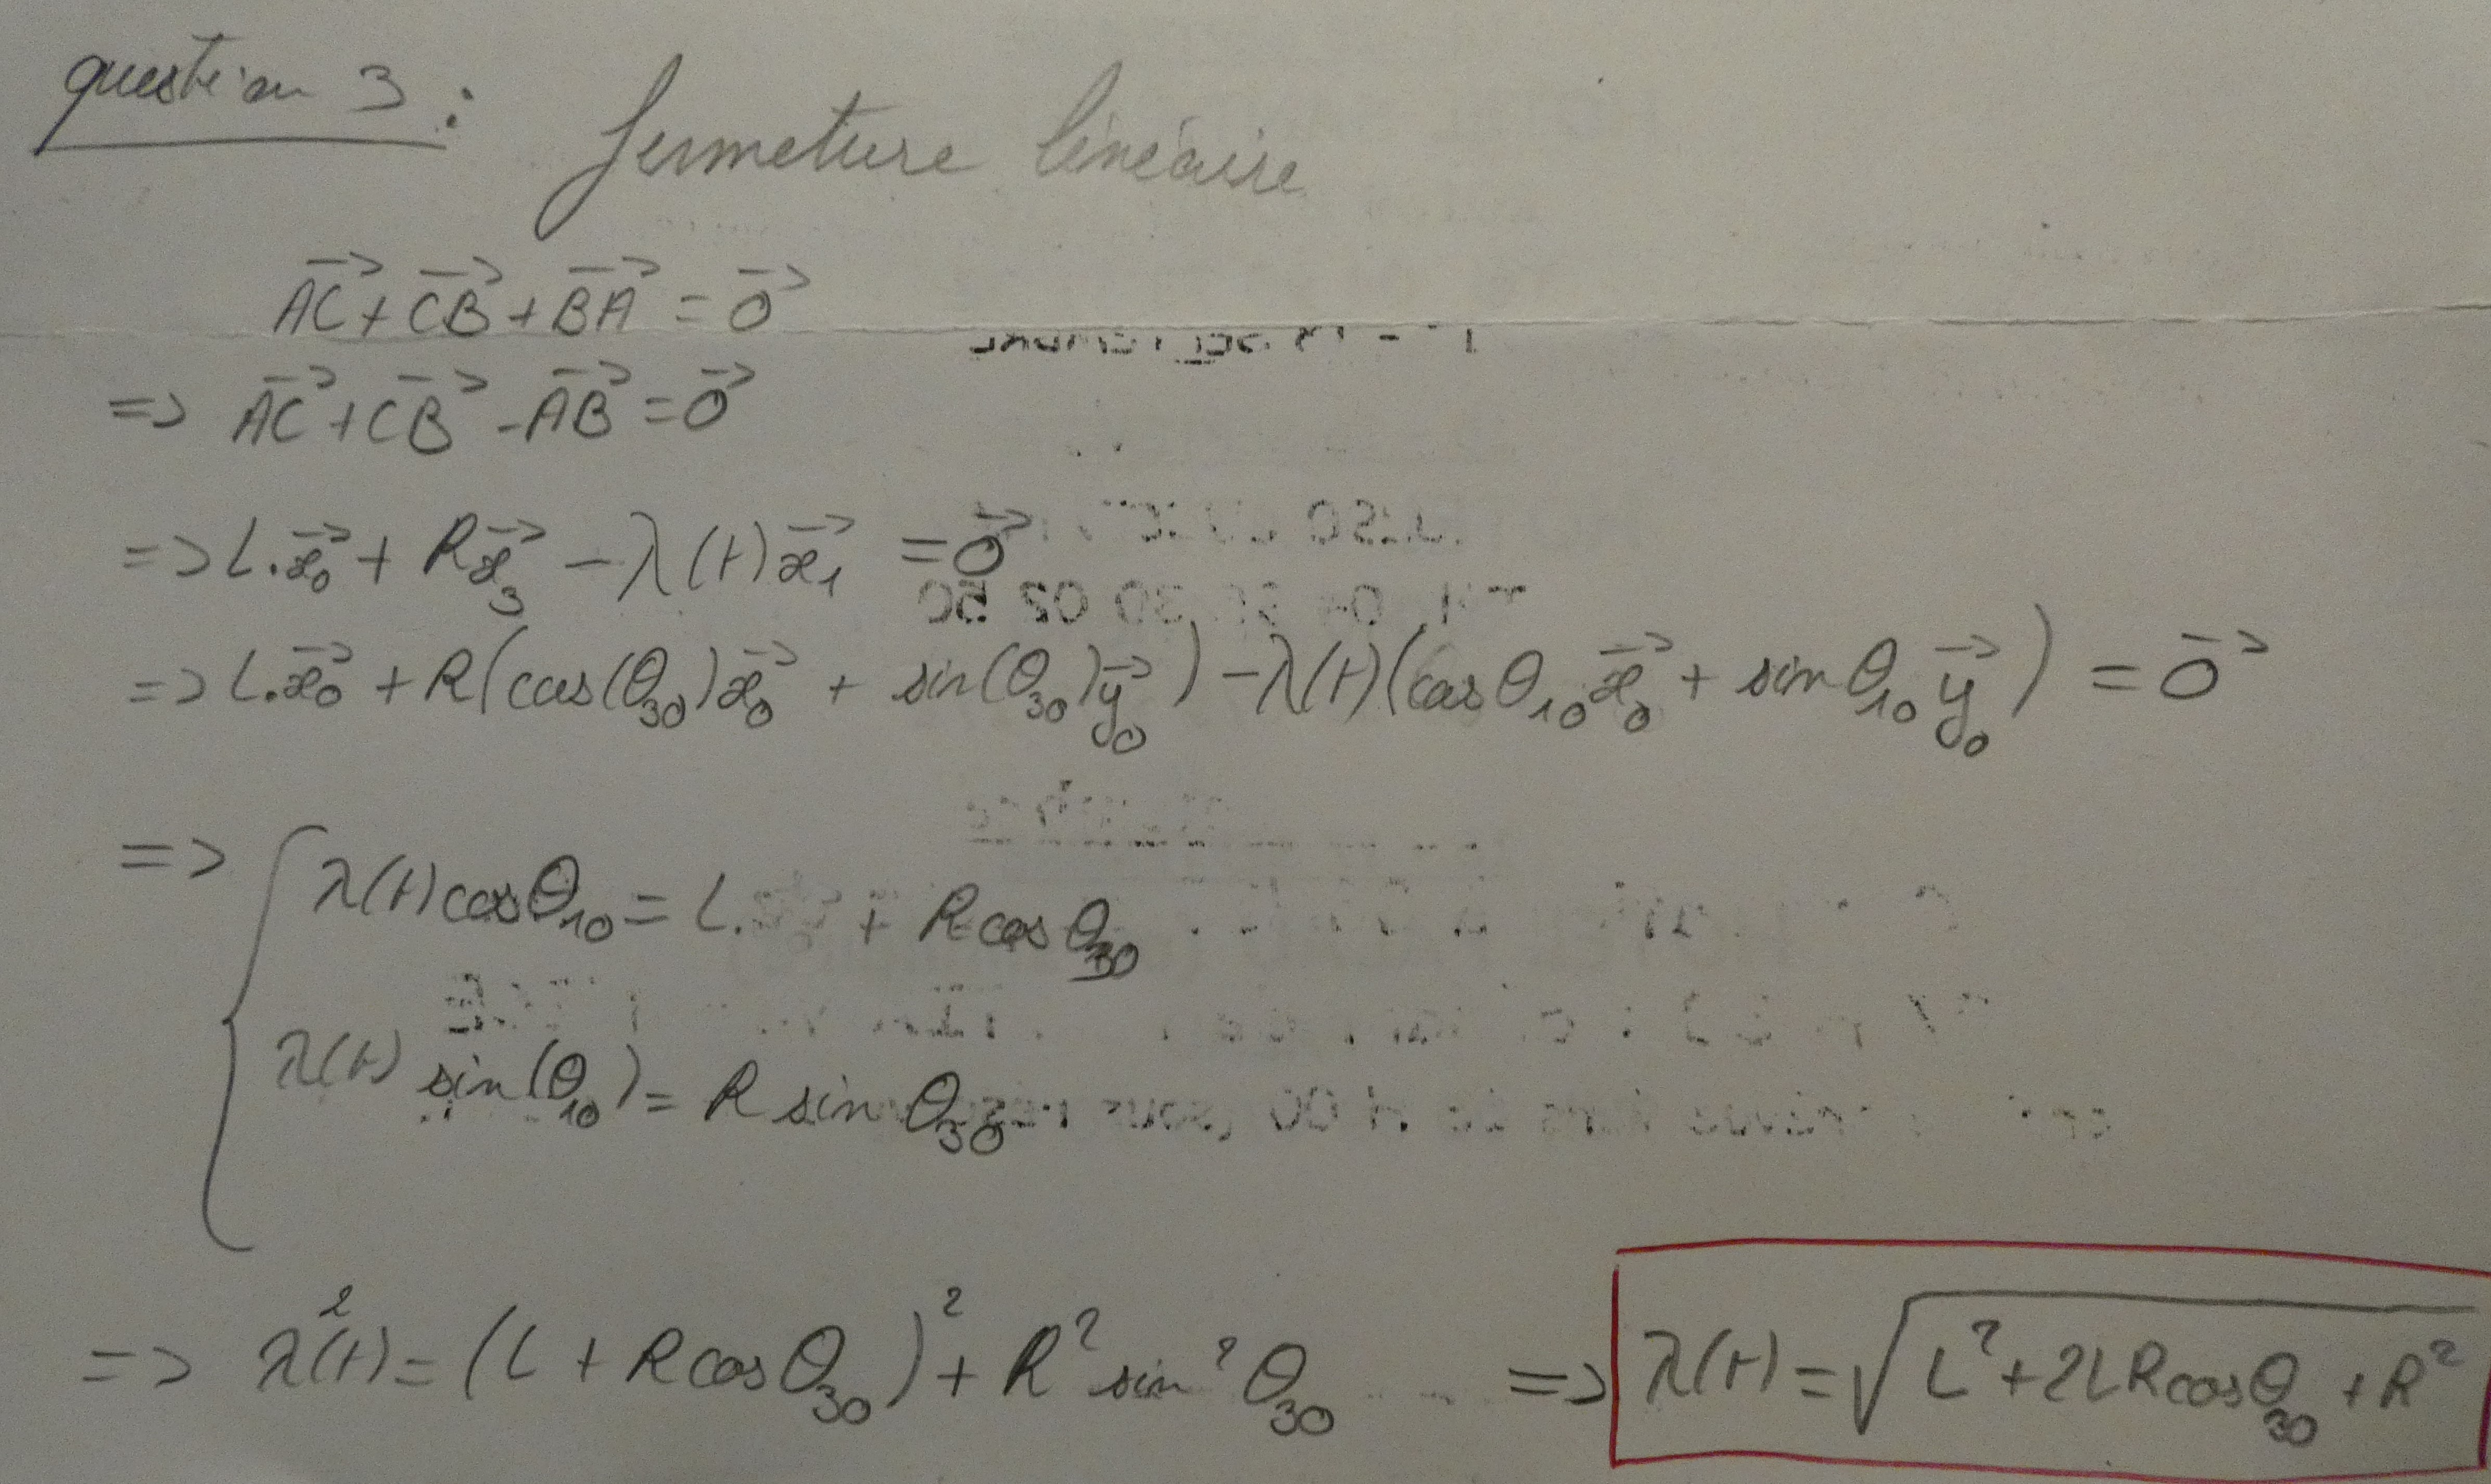 question 3 : fermeture linéaire
AC→ + CB→ + BA→ = 0→
=> AC→ + CB→ - AB→ = 0→
=> L.x₀→ + R x₃→ - λ(t) x₁→ = 0→
=> L.x₀→ + R(cos(θ₃₀) x₀→ + sin(θ₃₀) y₀→) - λ(t)(cos θ₁₀ x₀→ + sin θ₁₀ y₀→) = 0→
=> { λ(t) cos θ₁₀ = L. + R cos θ₃₀
λ(t) sin(θ₁₀) = R sin θ₃₀
=> λ²(t) = (L + R cos θ₃₀)² + R² sin² θ₃₀ => λ(t) = √(L² + 2LR cos θ₃₀ + R²)